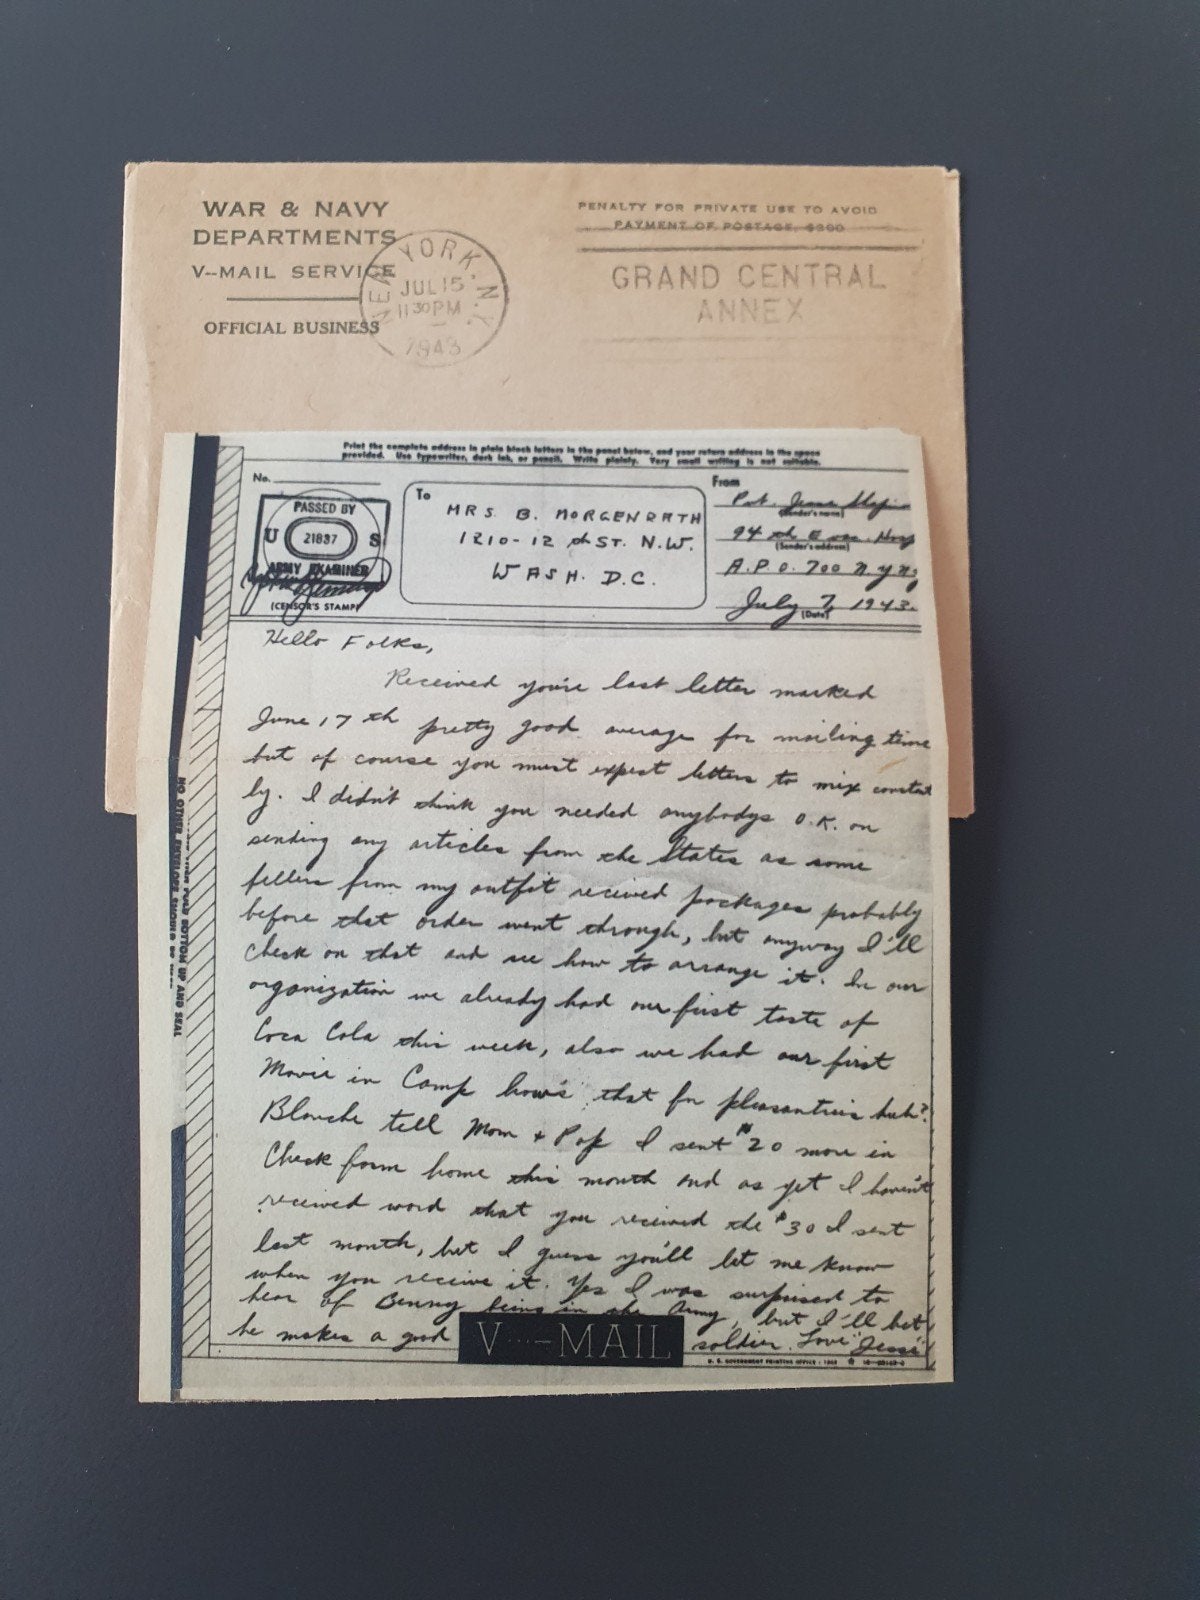 WAR & NAVY
DEPARTMENTS
V--MAIL SERVICE
OFFICIAL BUSINESS
NEW YORK, N.Y.
JUL 15
11 30 PM
1943
PENALTY FOR PRIVATE USE TO AVOID
PAYMENT OF POSTAGE, $300
GRAND CENTRAL
ANNEX
Print the complete address in plain block letters in the panel below, and your return address in the space
provided. Use typewriter, dark ink, or pencil. Write plainly. Very small writing is not suitable.
No.
PASSED BY
U 21837 S
ARMY EXAMINER
(CENSOR'S STAMP)
To
MRS B. MORGENRATH
1210-12 th ST. N.W.
WASH. D.C.
From
Pvt. Jesse
(Sender's name)
94 th Evac. Hosp
(Sender's address)
A.P.O. 700 N Y N Y
July 7, 1943.
(Date)
Hello Folks,
Received you're last letter marked
June 17 th pretty good average for mailing time
but of course you must expect letters to mix constant
ly. I didn't think you needed anybodys O.K. on
sending any articles from the States as some
fellers from my outfit recieved packages probably
before that order went through, but anyway I'll
check on that and see how to arrange it. In our
organization we already had our first taste of
Coca Cola this week, also we had our first
Movie in Camp how's that for pleasantries huh?
Blanche tell Mom + Pop I sent $20 more in
Check form home this month and as yet I haven't
received word that you received the $30 I sent
last month, but I guess you'll let me know
when you receive it. Yes I was surprised to
hear of Benny being in the Army, but I'll bet
he makes a good soldier. Love "Jessi"
V···-MAIL
U. S. GOVERNMENT PRINTING OFFICE : 1943
BOTTOM UP AND SEAL
NO OTHER ENVELOPE SHOULD BE